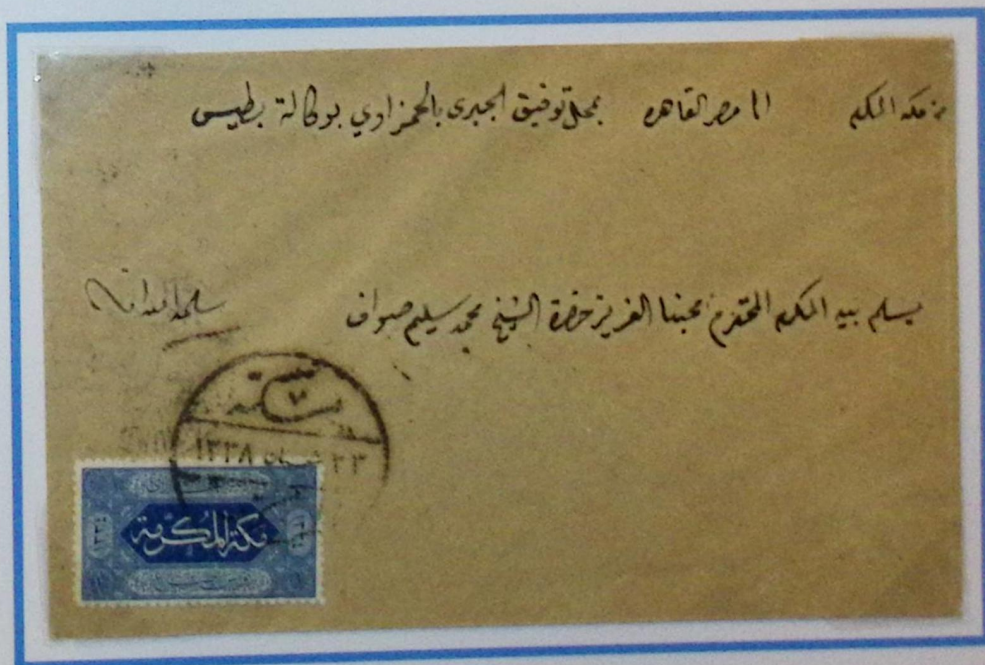 من مكه المكرمه الى مصر القاهره بمحل توفيق الجبرى بالحمزاوي بوكالة بطيس
يسلم بيد المكرم المحترم محبنا العزيز حضرة الشيخ محمد سليم صواف
مكة
٢٣ شعبان ١٣٣٨
مكة المكرمة
١٣٣٤